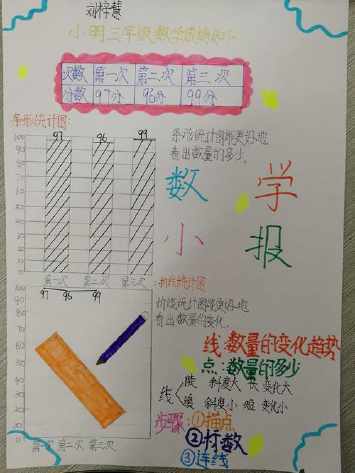 刘梓慧
小明三年级数学成绩统计
次数 第一次 第二次 第三次
分数 97分 96分 99分
条形统计图:
97 96 99
100
90
80
70
60
50
40
30
20
10
0
第一次 第二次 第三次
条形统计图能更好地
看出数量的多少。
数学
小报
折线统计图
97 96 99
100
90
80
70
60
50
40
30
20
10
0
第一次 第二次 第三次
折线统计图能更好地
看出数量的变化。
线:数量的变化趋势
点:数量的多少
线
陡 斜度大 长 变化大
缓 斜度小 短 变化小
步骤:①描点
②标数
③连线